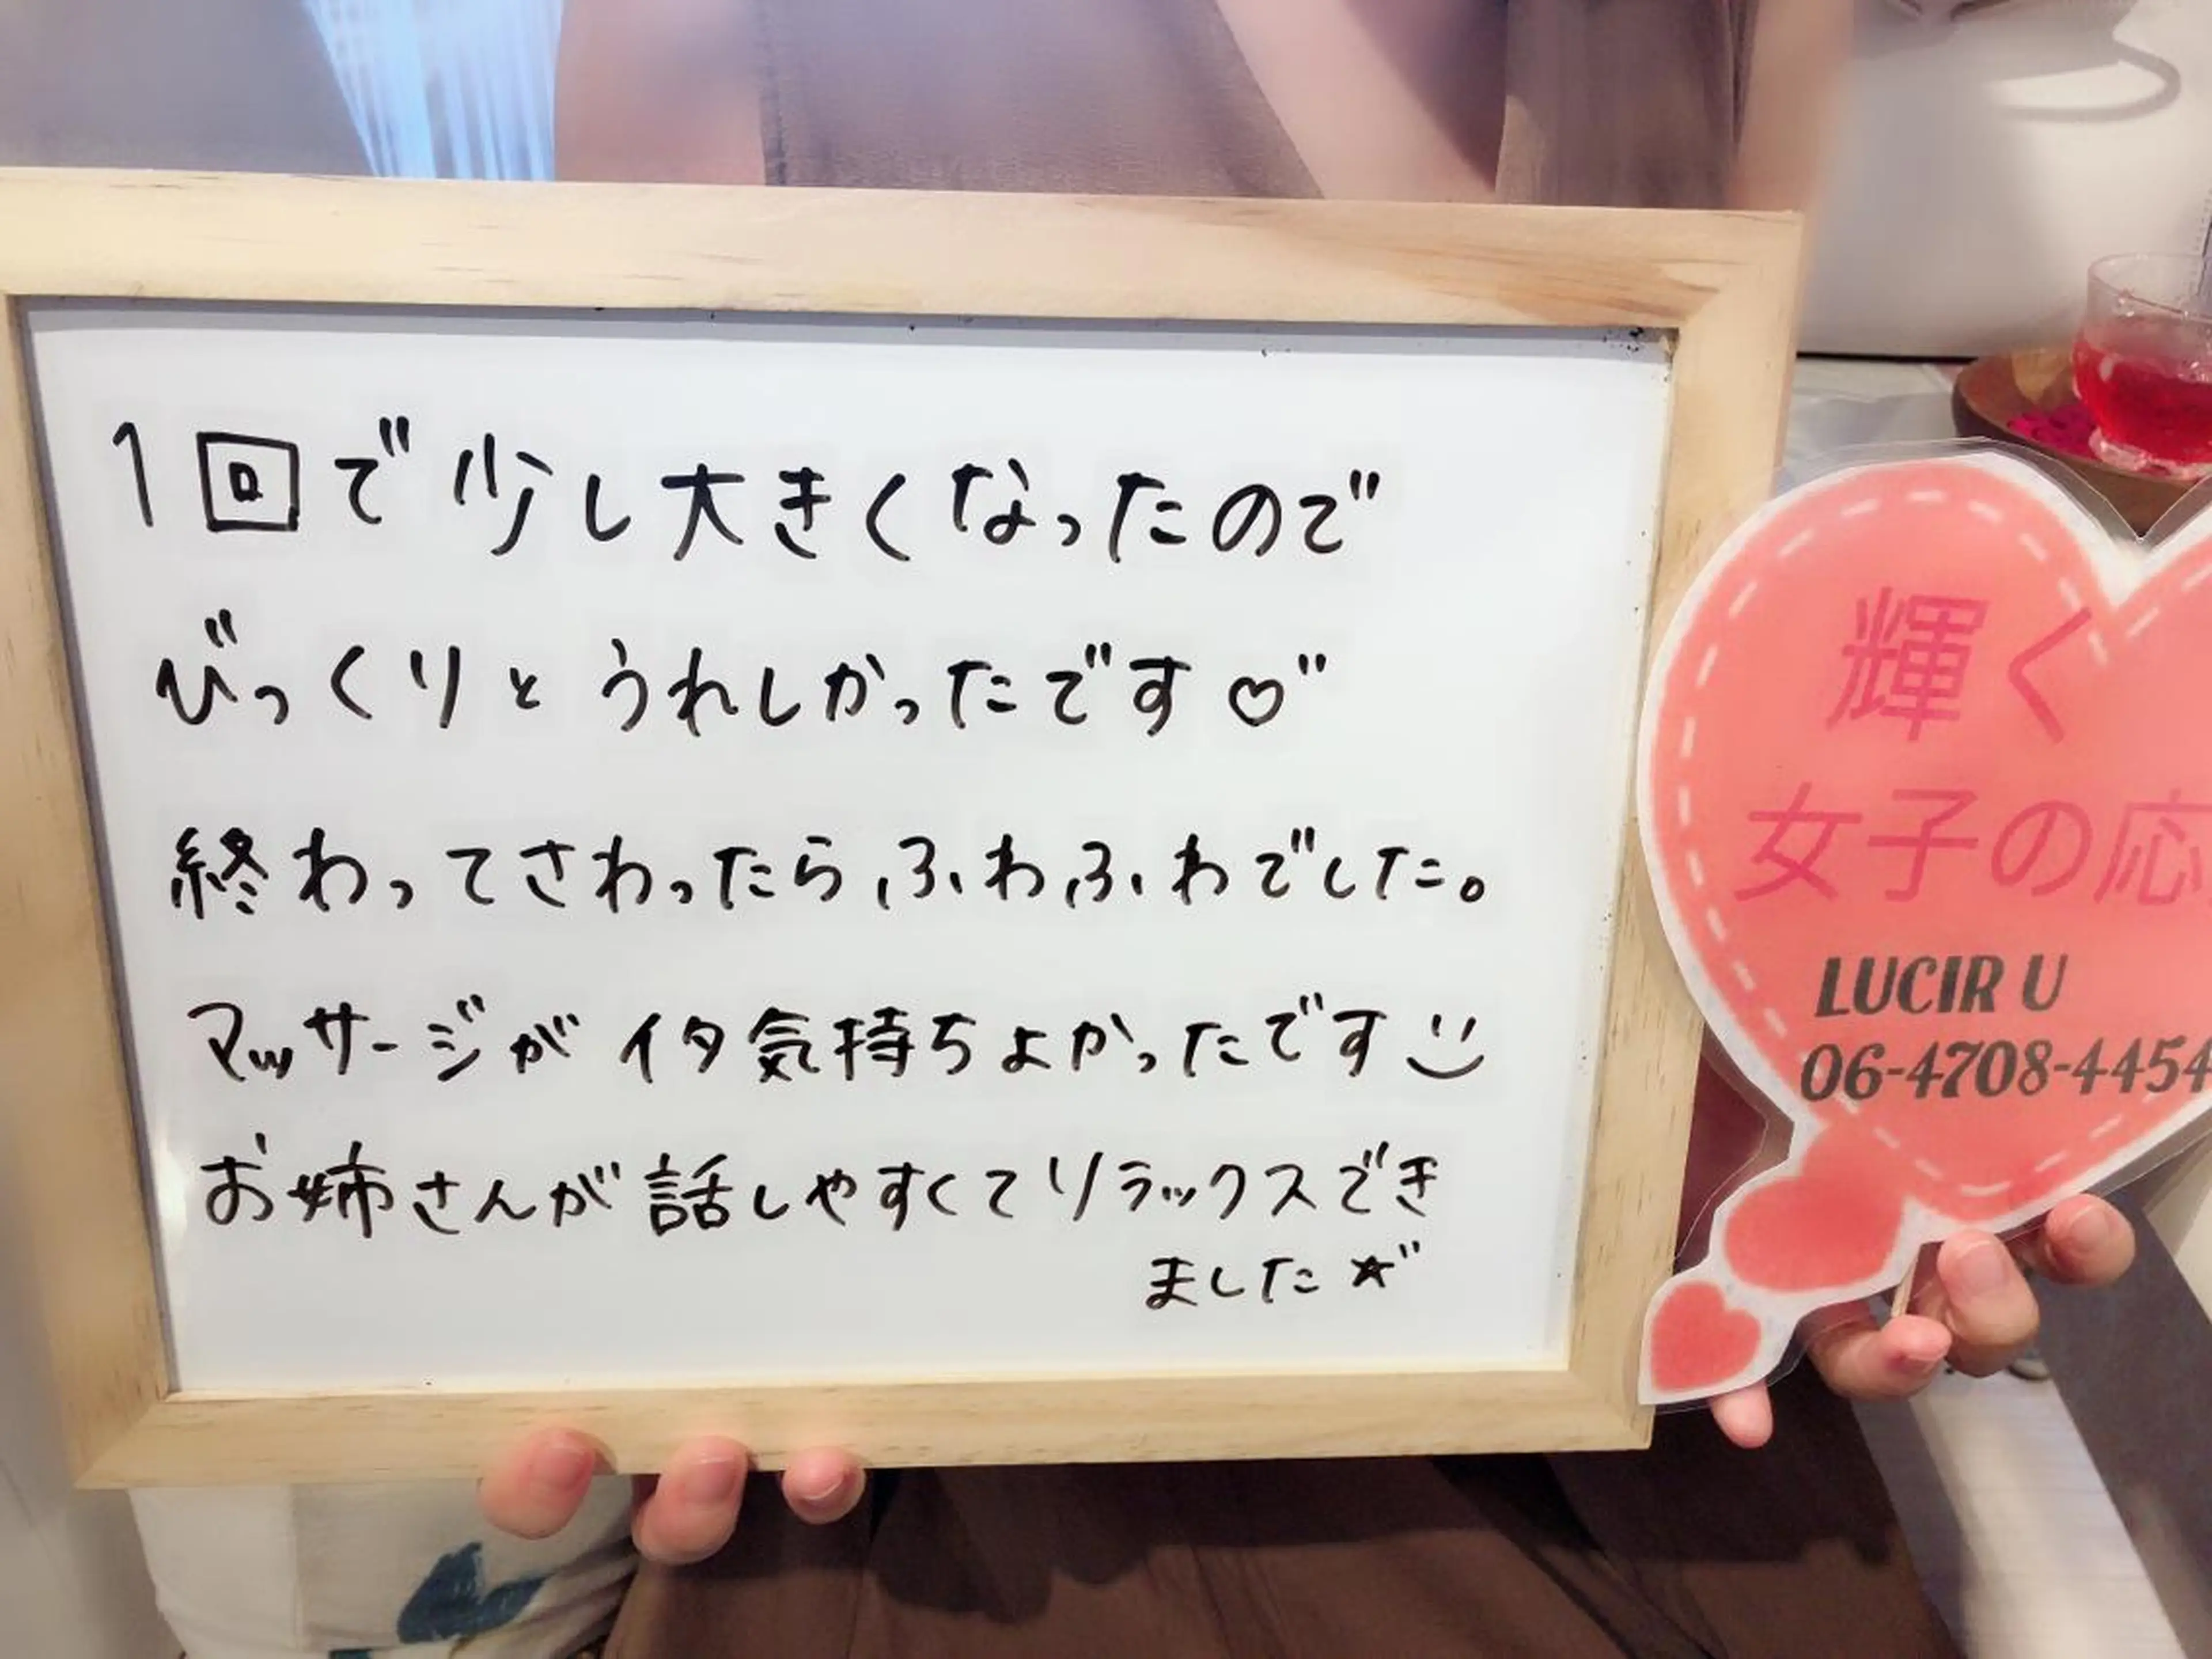 1回で少し大きくなったので
びっくりとうれしかったです♡"
終わってさわったらふわふわでした。
マッサージがイタ気持ちよかったです
お姉さんが話しやすくてリラックスでき
ました☆"
輝く
女子の応
LUCIR U
06-4708-4454